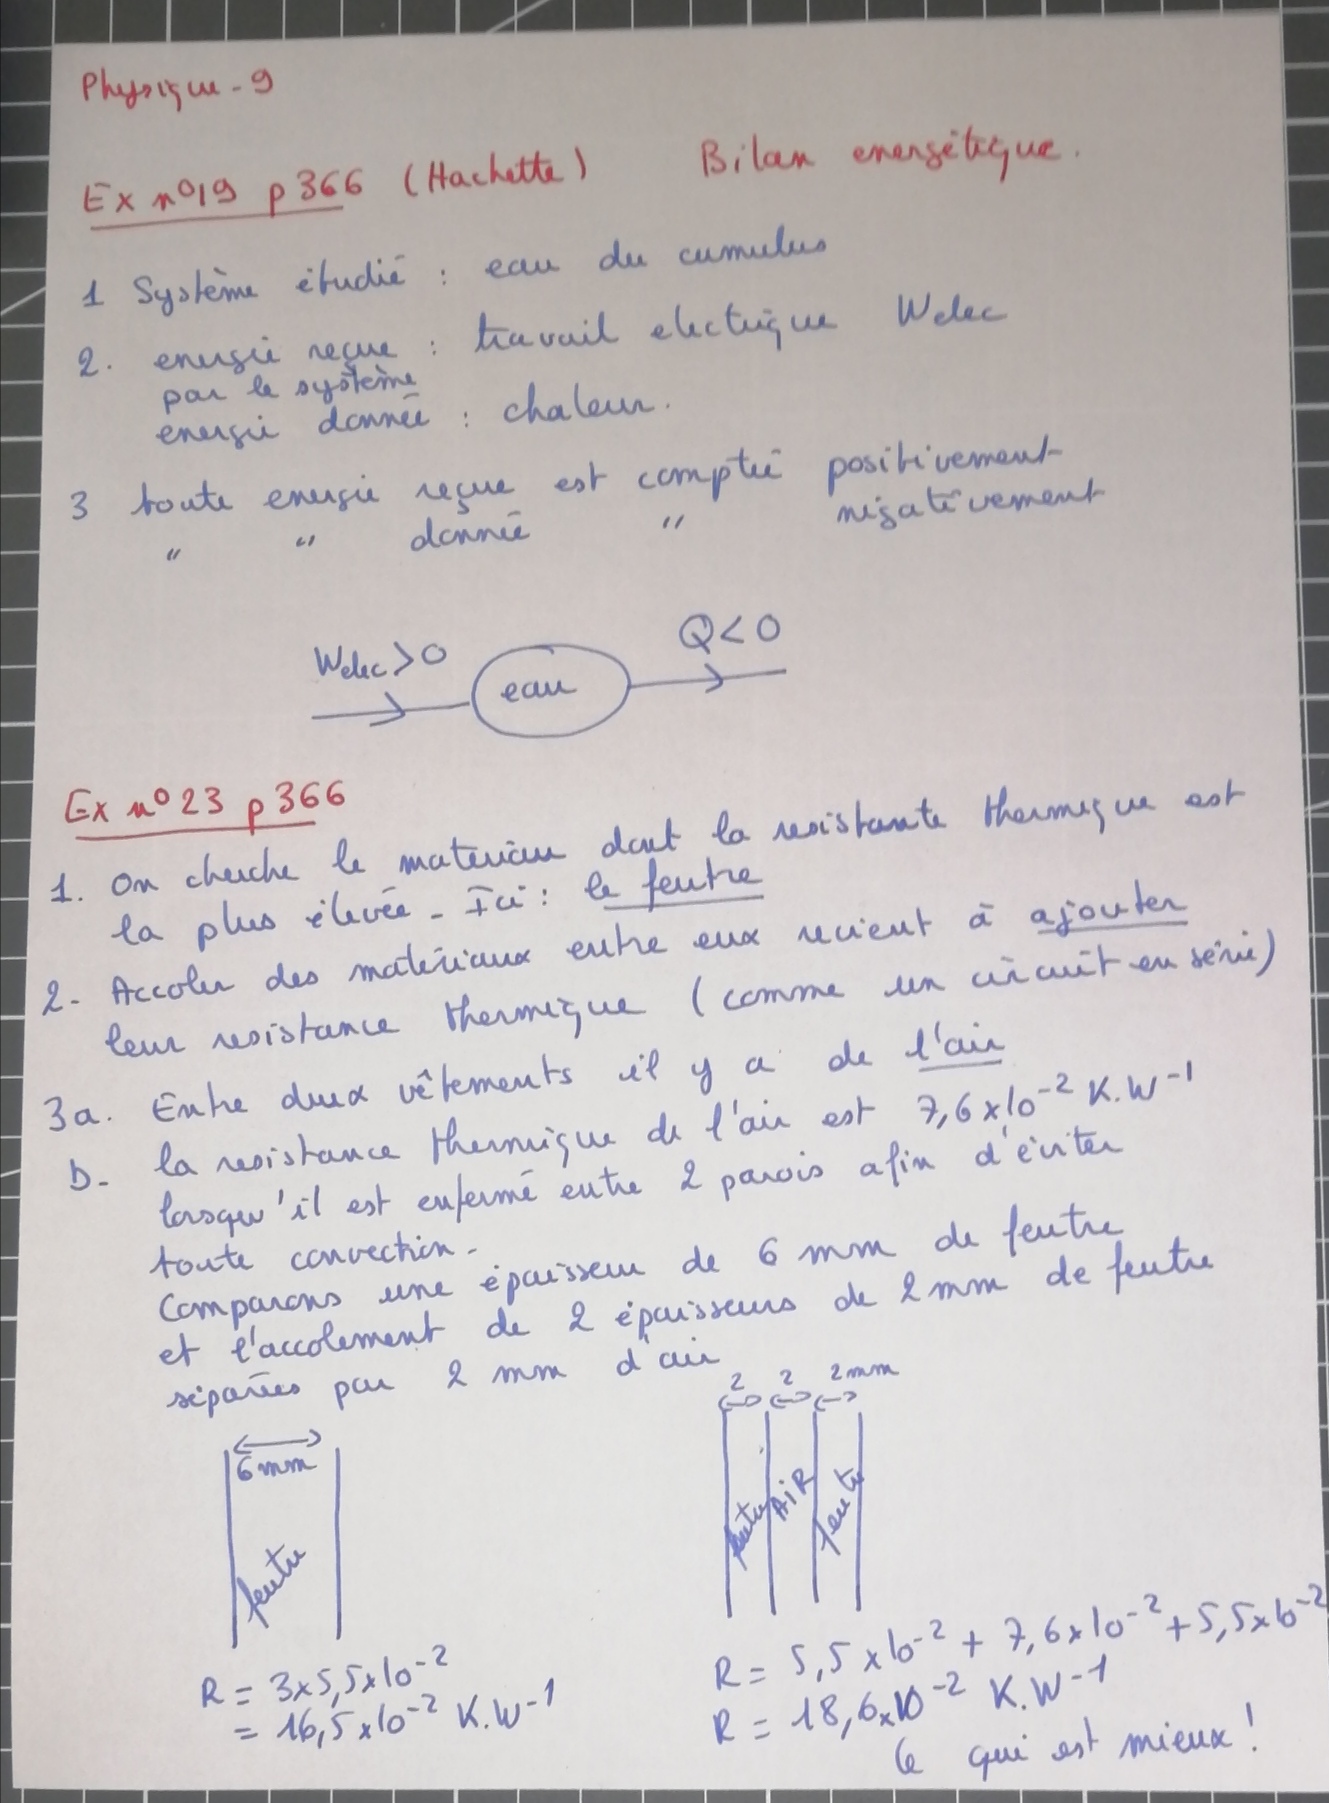 Physique - 9
Ex n°19 p 366 (Hachette) Bilan energétique.
1 Système étudié : eau du cumulus
2. energie reçue : travail electrique Welec
par le système
énergie donnée : chaleur.
3 toute energie reçue est comptée positivement
" " donnée " négativement
Welec>0 eau Q<0
Ex n° 23 p 366
1. On cherche le materiau dont la resistante thermique est
la plus élevée - Ici : le feutre
2- Accoler des matériaux entre eux revient à ajouter
leur resistance thermique (comme un circuit en série)
3a. Entre deux vêtements il y a de l'air
b- la resistance thermique de l'air est 7,6 x 10⁻² K.W⁻¹
lorsqu'il est enfermé entre 2 parois afin d'éviter
toute convection -
Comparons une épaisseur de 6 mm de feutre
et l'accolement de 2 épaisseurs de 2 mm de feutre
séparées par 2 mm d'air
2 2 2mm
6 mm
feutre
feutre AIR feutre
R = 3x5,5x10⁻²
= 16,5x10⁻² K.W⁻¹
R = 5,5 x 10⁻² + 7,6 x 10⁻² + 5,5x10⁻²
R = 18,6x10⁻² K.W⁻¹
Ce qui est mieux !